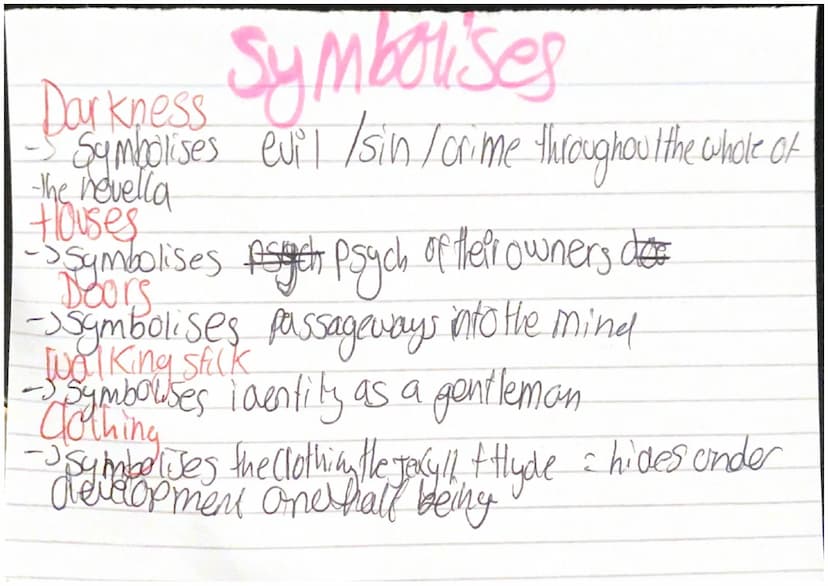 Symbolises
Darkness
-> Symbolises evil /sin/crime throughout the whole of
the novella
Houses
-> Symbolises psych psych of their owners
Doors
-> Symbolises passageways into the mind
Walking stick
-> Symbolises identity as a gentleman
Clothing
-> Symbolises the clothing the Jekyll + Hyde = hides under
development one half being